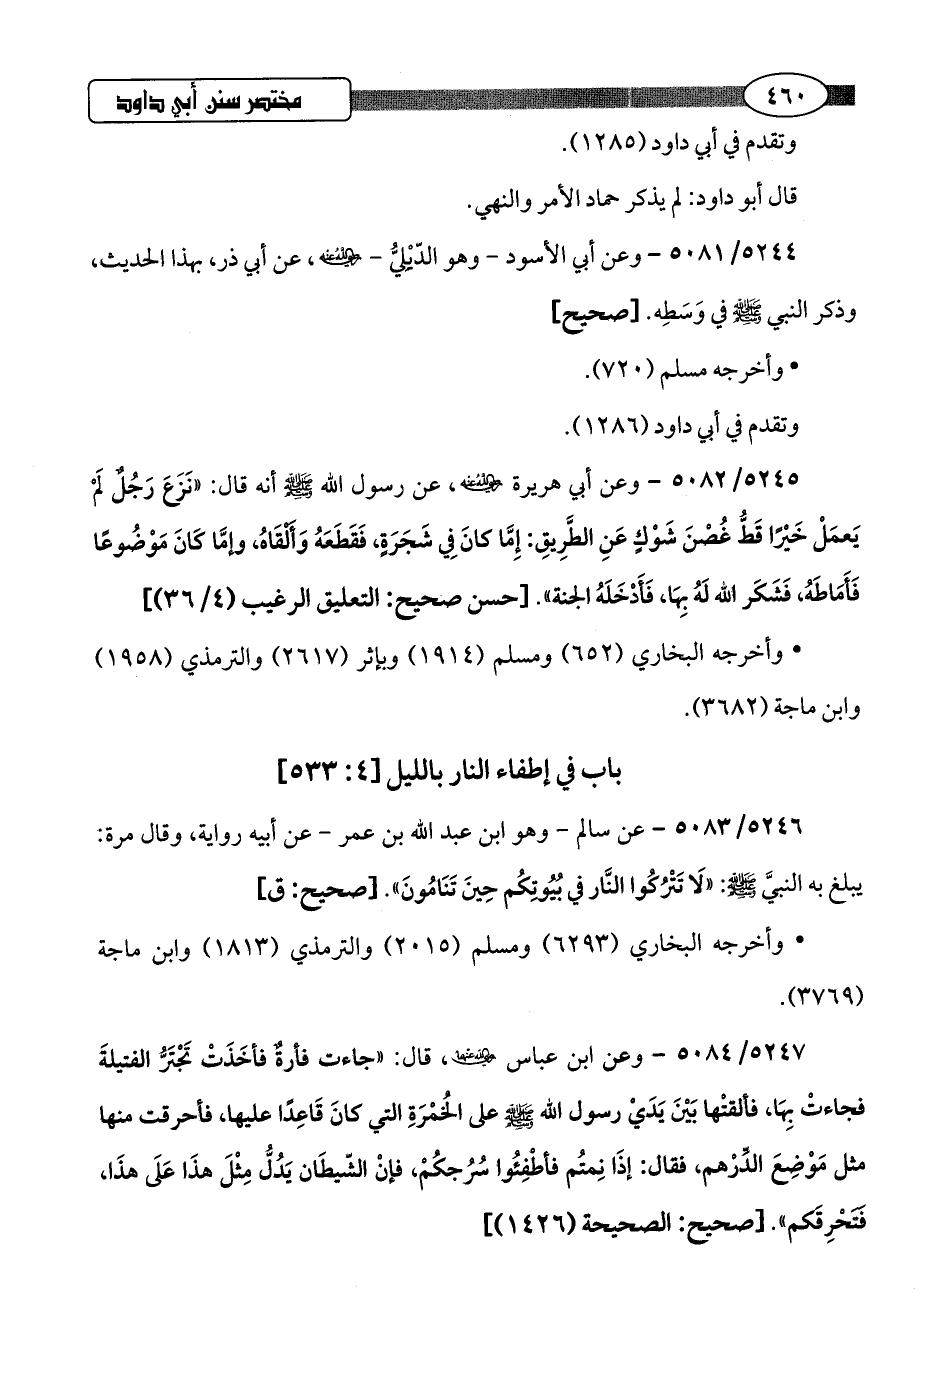 ٤٦٠ مختصر سنن أبي داود
وتقدم في أبي داود (١٢٨٥).
قال أبو داود: لم يذكر حماد الأمر والنهي.
٥٠٨١/٥٢٤٤ - وعن أبي الأسود - وهو الدِّيْلِيُّ - رضي الله عنه، عن أبي ذر، بهذا الحديث،
وذكر النبي ﷺ في وَسَطِه. [صحيح]
• وأخرجه مسلم (٧٢٠).
وتقدم في أبي داود (١٢٨٦).
٥٠٨٢/٥٢٤٥ - وعن أبي هريرة رضي الله عنه، عن رسول الله ﷺ أنه قال: «نَزَعَ رَجُلٌ لَمْ
يَعمَلْ خَيْرًا قَطُّ غُصْنَ شَوْكٍ عَنِ الطَّرِيقِ: إِمَّا كانَ فِي شَجَرَةٍ، فَقَطَعَهُ وَأَلْقَاهُ، وإِمَّا كَانَ مَوْضُوعًا
فَأَمَاطَهُ، فَشَكَر الله لَهُ بِهَا، فَأَدْخَلَهُ الجنة». [حسن صحيح: التعليق الرغيب (٣٦/٤)]
• وأخرجه البخاري (٦٥٢) ومسلم (١٩١٤) وبإثر (٢٦١٧) والترمذي (١٩٥٨)
وابن ماجة (٣٦٨٢).
باب في إطفاء النار بالليل [٤: ٥٣٣]
٥٠٨٣/٥٢٤٦ - عن سالم - وهو ابن عبد الله بن عمر - عن أبيه رواية، وقال مرة:
يبلغ به النبيَّ ﷺ: «لَا تَتْرُكُوا النَّار في بُيُوتِكُم حِينَ تَنَامُونَ». [صحيح: ق]
• وأخرجه البخاري (٦٢٩٣) ومسلم (٢٠١٥) والترمذي (١٨١٣) وابن ماجة
(٣٧٦٩).
٥٠٨٤/٥٢٤٧ - وعن ابن عباس رضي الله عنهما، قال: «جاءت فأرةٌ فأخَذَتْ تَجْتَرُّ الفتيلةَ
فجاءتْ بِهَا، فألقتْها بَيْنَ يَدَيْ رسول الله ﷺ على الخُمْرَةِ التي كانَ قَاعِدًا عليها، فأحرقت منها
مثل مَوْضِعَ الدِّرْهم، فقال: إذَا نِمتُم فأطْفِئُوا سُرُجكُمْ، فإنْ الشّيطان يَدُلُّ مِثْلَ هذَا عَلَى هذَا،
فَتَحْرِقَكم». [صحيح: الصحيحة (١٤٢٦)]